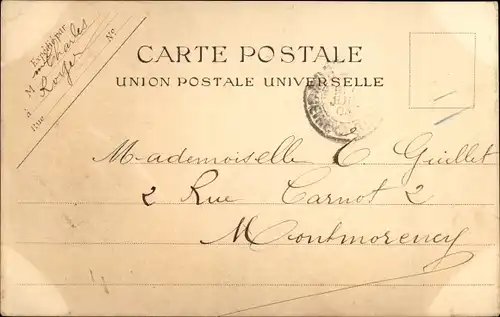 Expédié par
M Charles
Roger
à
Rue Nº
CARTE POSTALE
UNION POSTALE UNIVERSELLE
Mademoiselle C Guillet
2 Rue Carnot 2
Montmorency